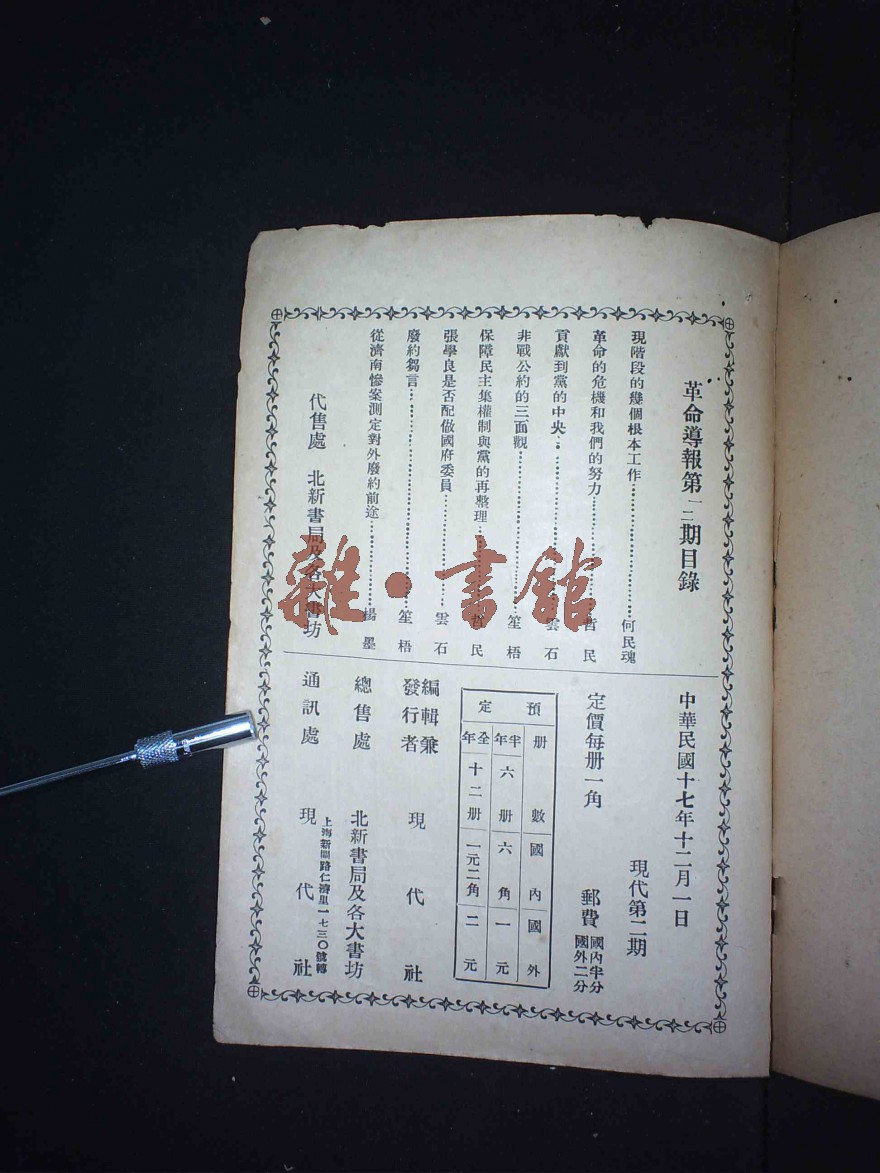 革命導報第一二期目錄
現階段的幾個根本工作…………………何民魂
革命的危機和我們的努力…………哲民
貢獻到黨的中央…………………雲石
非戰公約的三面觀…………………笙梧
保障民主集權制與黨的再整理…………哲民
張學良是否配做國府委員…………雲石
廢約芻言…………………笙梧
從濟南慘案測定對外廢約前途…………楊墨
代售處 北新書局及各大書坊
中華民國十七年十二月一日
現代第二期
定價每册一角 郵費 國內半分 國外二分
預定 册數 國內 國外
半年 六册 六角 一元
全年 十二册 一元二角 二元
編輯兼發行者 現代社
總售處 北新書局及各大書坊
通訊處 現代社
上海新閘路仁濟里一七三〇號轉
雜·書館